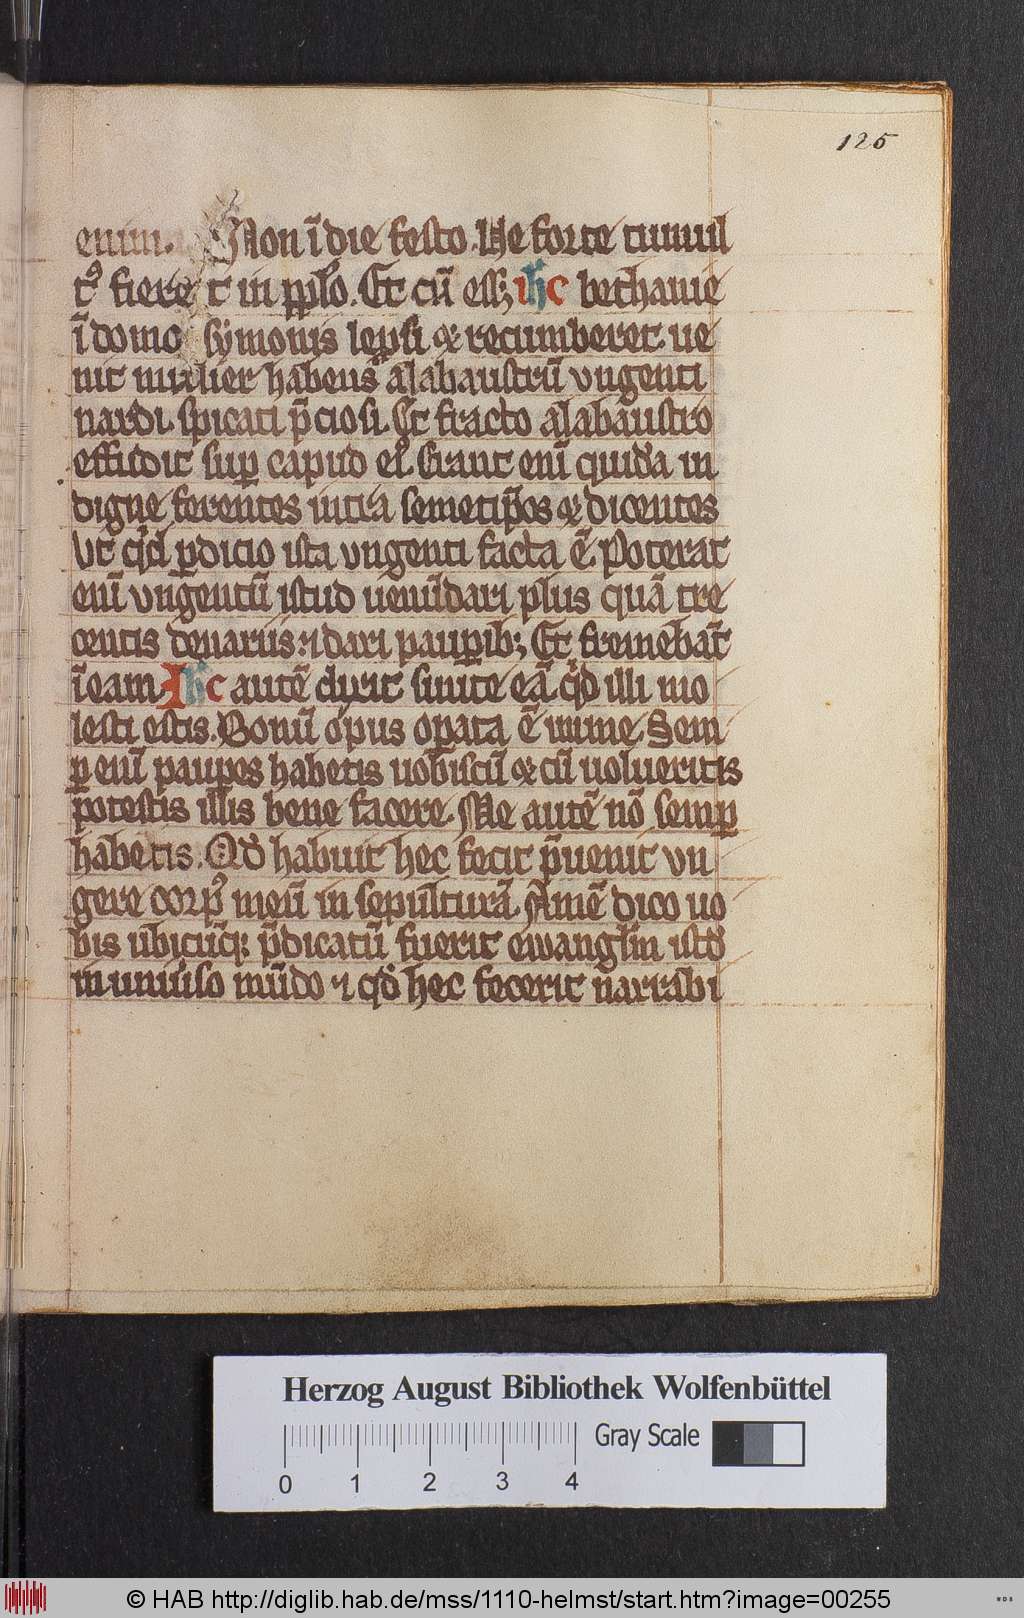 125
enim. Non ī die festo. Ne forte tumul
tꝰ fieret in pplo. Et cū essꝫ ihc bethanie
ī domo symonis lepsi ⁊ recumberet ue
nit mulier habens alabaustrū vngenti
nardi spicati p̄ciosi. Et fracto alabaustro
effudit suꝑ capud eiꝰ. Erant enī quidā in
digne ferentes intra semetip̄os ⁊ dicentes
Vt qͥd ꝑdicio ista vngenti facta ē. Poterat
enī vngentū istud uenūdari plus quā tre
centis denariis: ⁊ dari pauꝑibꝫ Et fremebāt
ī eam. Ihc autē dixit sinite eā qͥd illi mo
lesti estis. Bonū opus oꝑata ē in me. Sem
ꝑ enī pauꝑes habetis uobiscū ⁊ cū uolueritis
potestis illis bene facere. Me autē nō semꝑ
habetis. Qd̄ habuit hec fecit p̄uenit vn
gere corpꝰ meū in sepulturā. Amē dico uo
bis ubicūqꝫ p̄dicatū fuerit ewangliū istd̄
in uniūso mūdo ⁊ qd̄ hec fecerit narrabi
Herzog August Bibliothek Wolfenbüttel
Gray Scale
0 1 2 3 4
© HAB http://diglib.hab.de/mss/1110-helmst/start.htm?image=00255